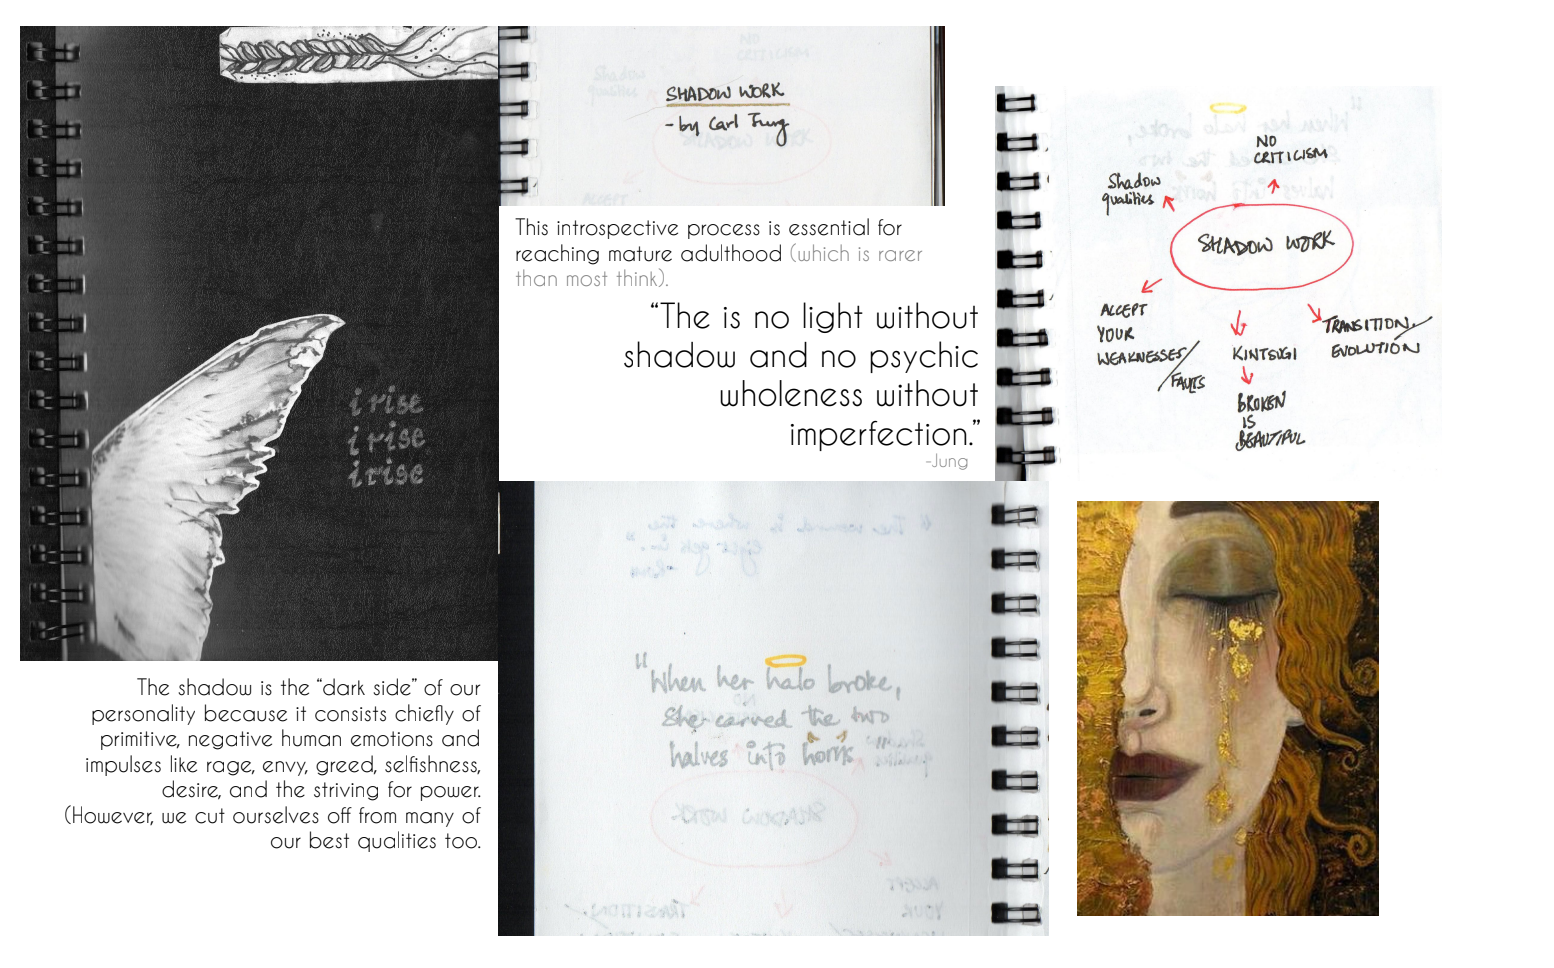 i rise
i rise
i rise
SHADOW WORK
- by Carl Jung
This introspective process is essential for
reaching mature adulthood (which is rarer
than most think).
“The is no light without
shadow and no psychic
wholeness without
imperfection.”
-Jung
NO
CRITICISM
Shadow
qualities
SHADOW WORK
ACCEPT
YOUR
WEAKNESSES/
FAULTS
KINTSUGI
BROKEN
IS
BEAUTIFUL
TRANSITION/
EVOLUTION
The shadow is the “dark side” of our
personality because it consists chiefly of
primitive, negative human emotions and
impulses like rage, envy, greed, selfishness,
desire, and the striving for power.
(However, we cut ourselves off from many of
our best qualities too.
"The wound is where the
light gets in."
"When her halo broke,
She carved the two
halves into horns"